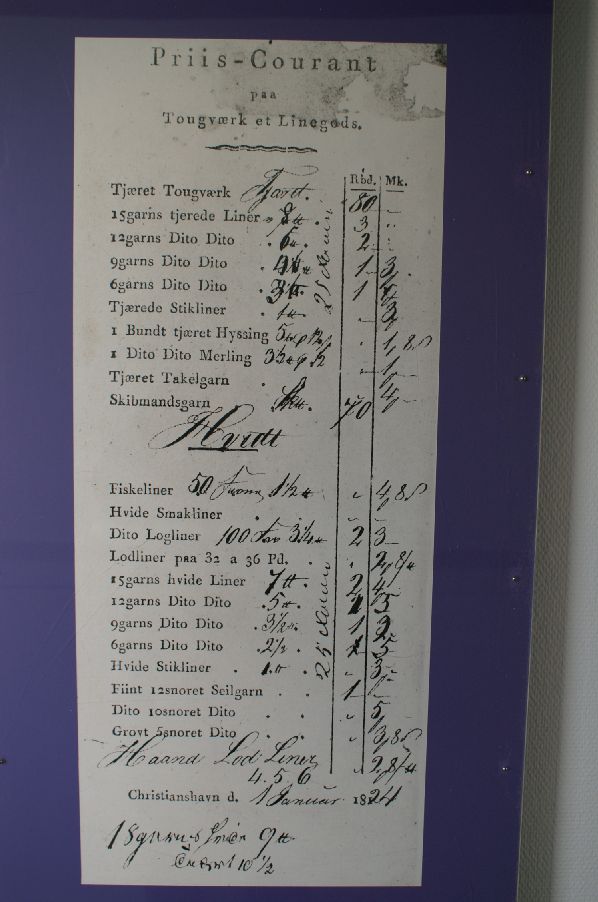 Priis-Courant
paa
Tougværk et Linegods.
Rbd. Mk.
Tjæret Tougværk 80 –
15garns tjerede Liner 3
12garns Dito Dito 6 2
9garns Dito Dito 1 3
6garns Dito Dito 1
Tjærede Stikliner 3
1 Bundt tjæret Hyssing 1,8
1 Dito Dito Merling 1
Tjæret Takelgarn 4
Skibmandsgarn 70
Hvidt
Fiskeliner 50 1½ 4,8
Hvide Smakliner
Dito Logliner 100 2 3
Lodliner paa 32 a 36 Pd. 2,8
15garns hvide Liner 7 2 4
12garns Dito Dito 5 3
9garns Dito Dito 3½ 1 2
6garns Dito Dito 2½ 1 5
Hvide Stikliner 1 3
Fiint 12snoret Seilgarn 1
Dito 10snoret Dito 5
Grovt 5snoret Dito 3,8
Haand Lod Liner 2,8
4. 5. 6
Christianshavn d. 1 Januar 1824
18garns 9
10½